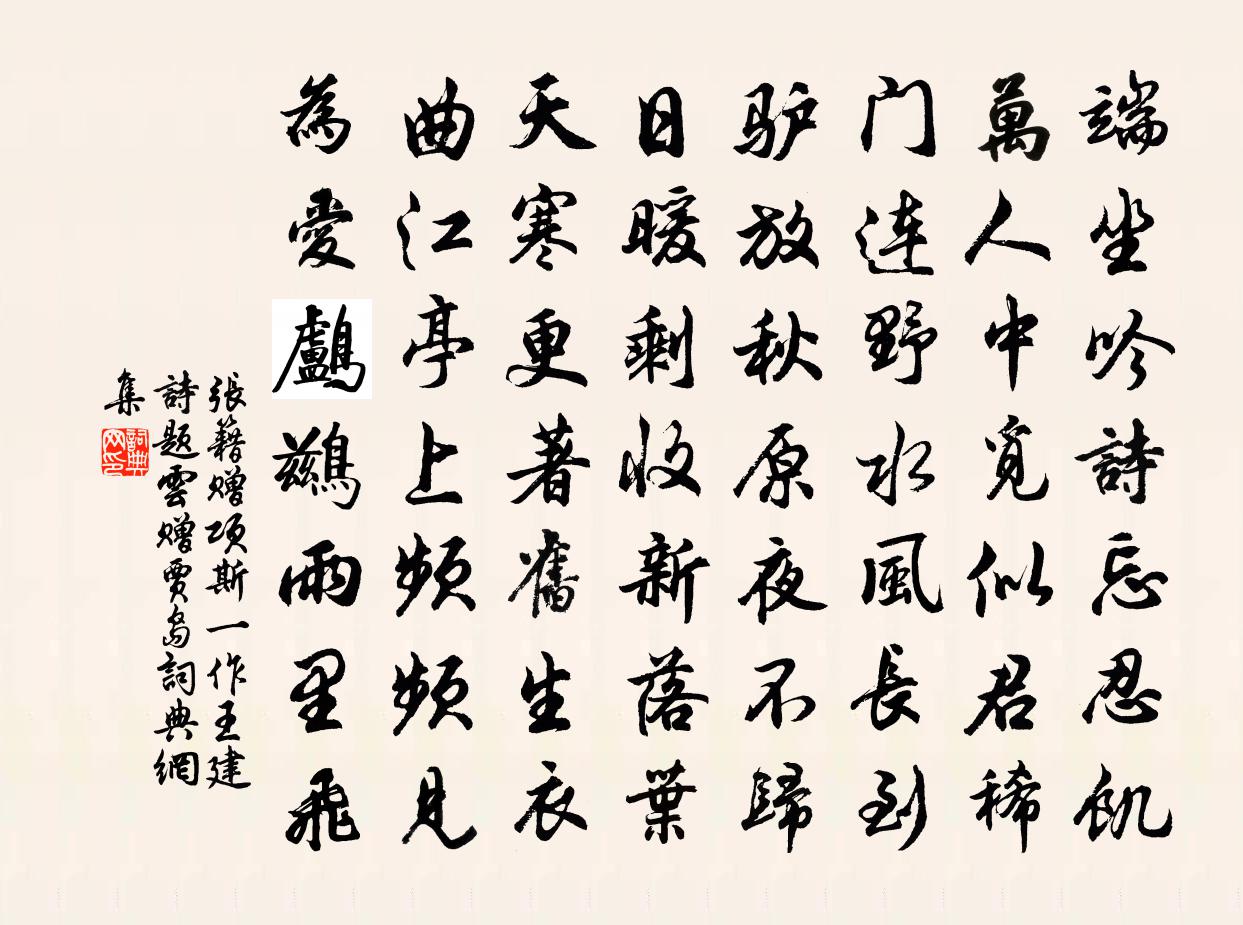 端坐吟詩忘忍飢
萬人中覓似君稀
门连野水風長到
驴放秋原夜不歸
日暖剩收新落葉
天寒更著舊生衣
曲江亭上频频見
為愛鸕鷀雨里飛
張籍赠項斯一作王建
詩题雲赠賈島詞典網
集
詞典网印